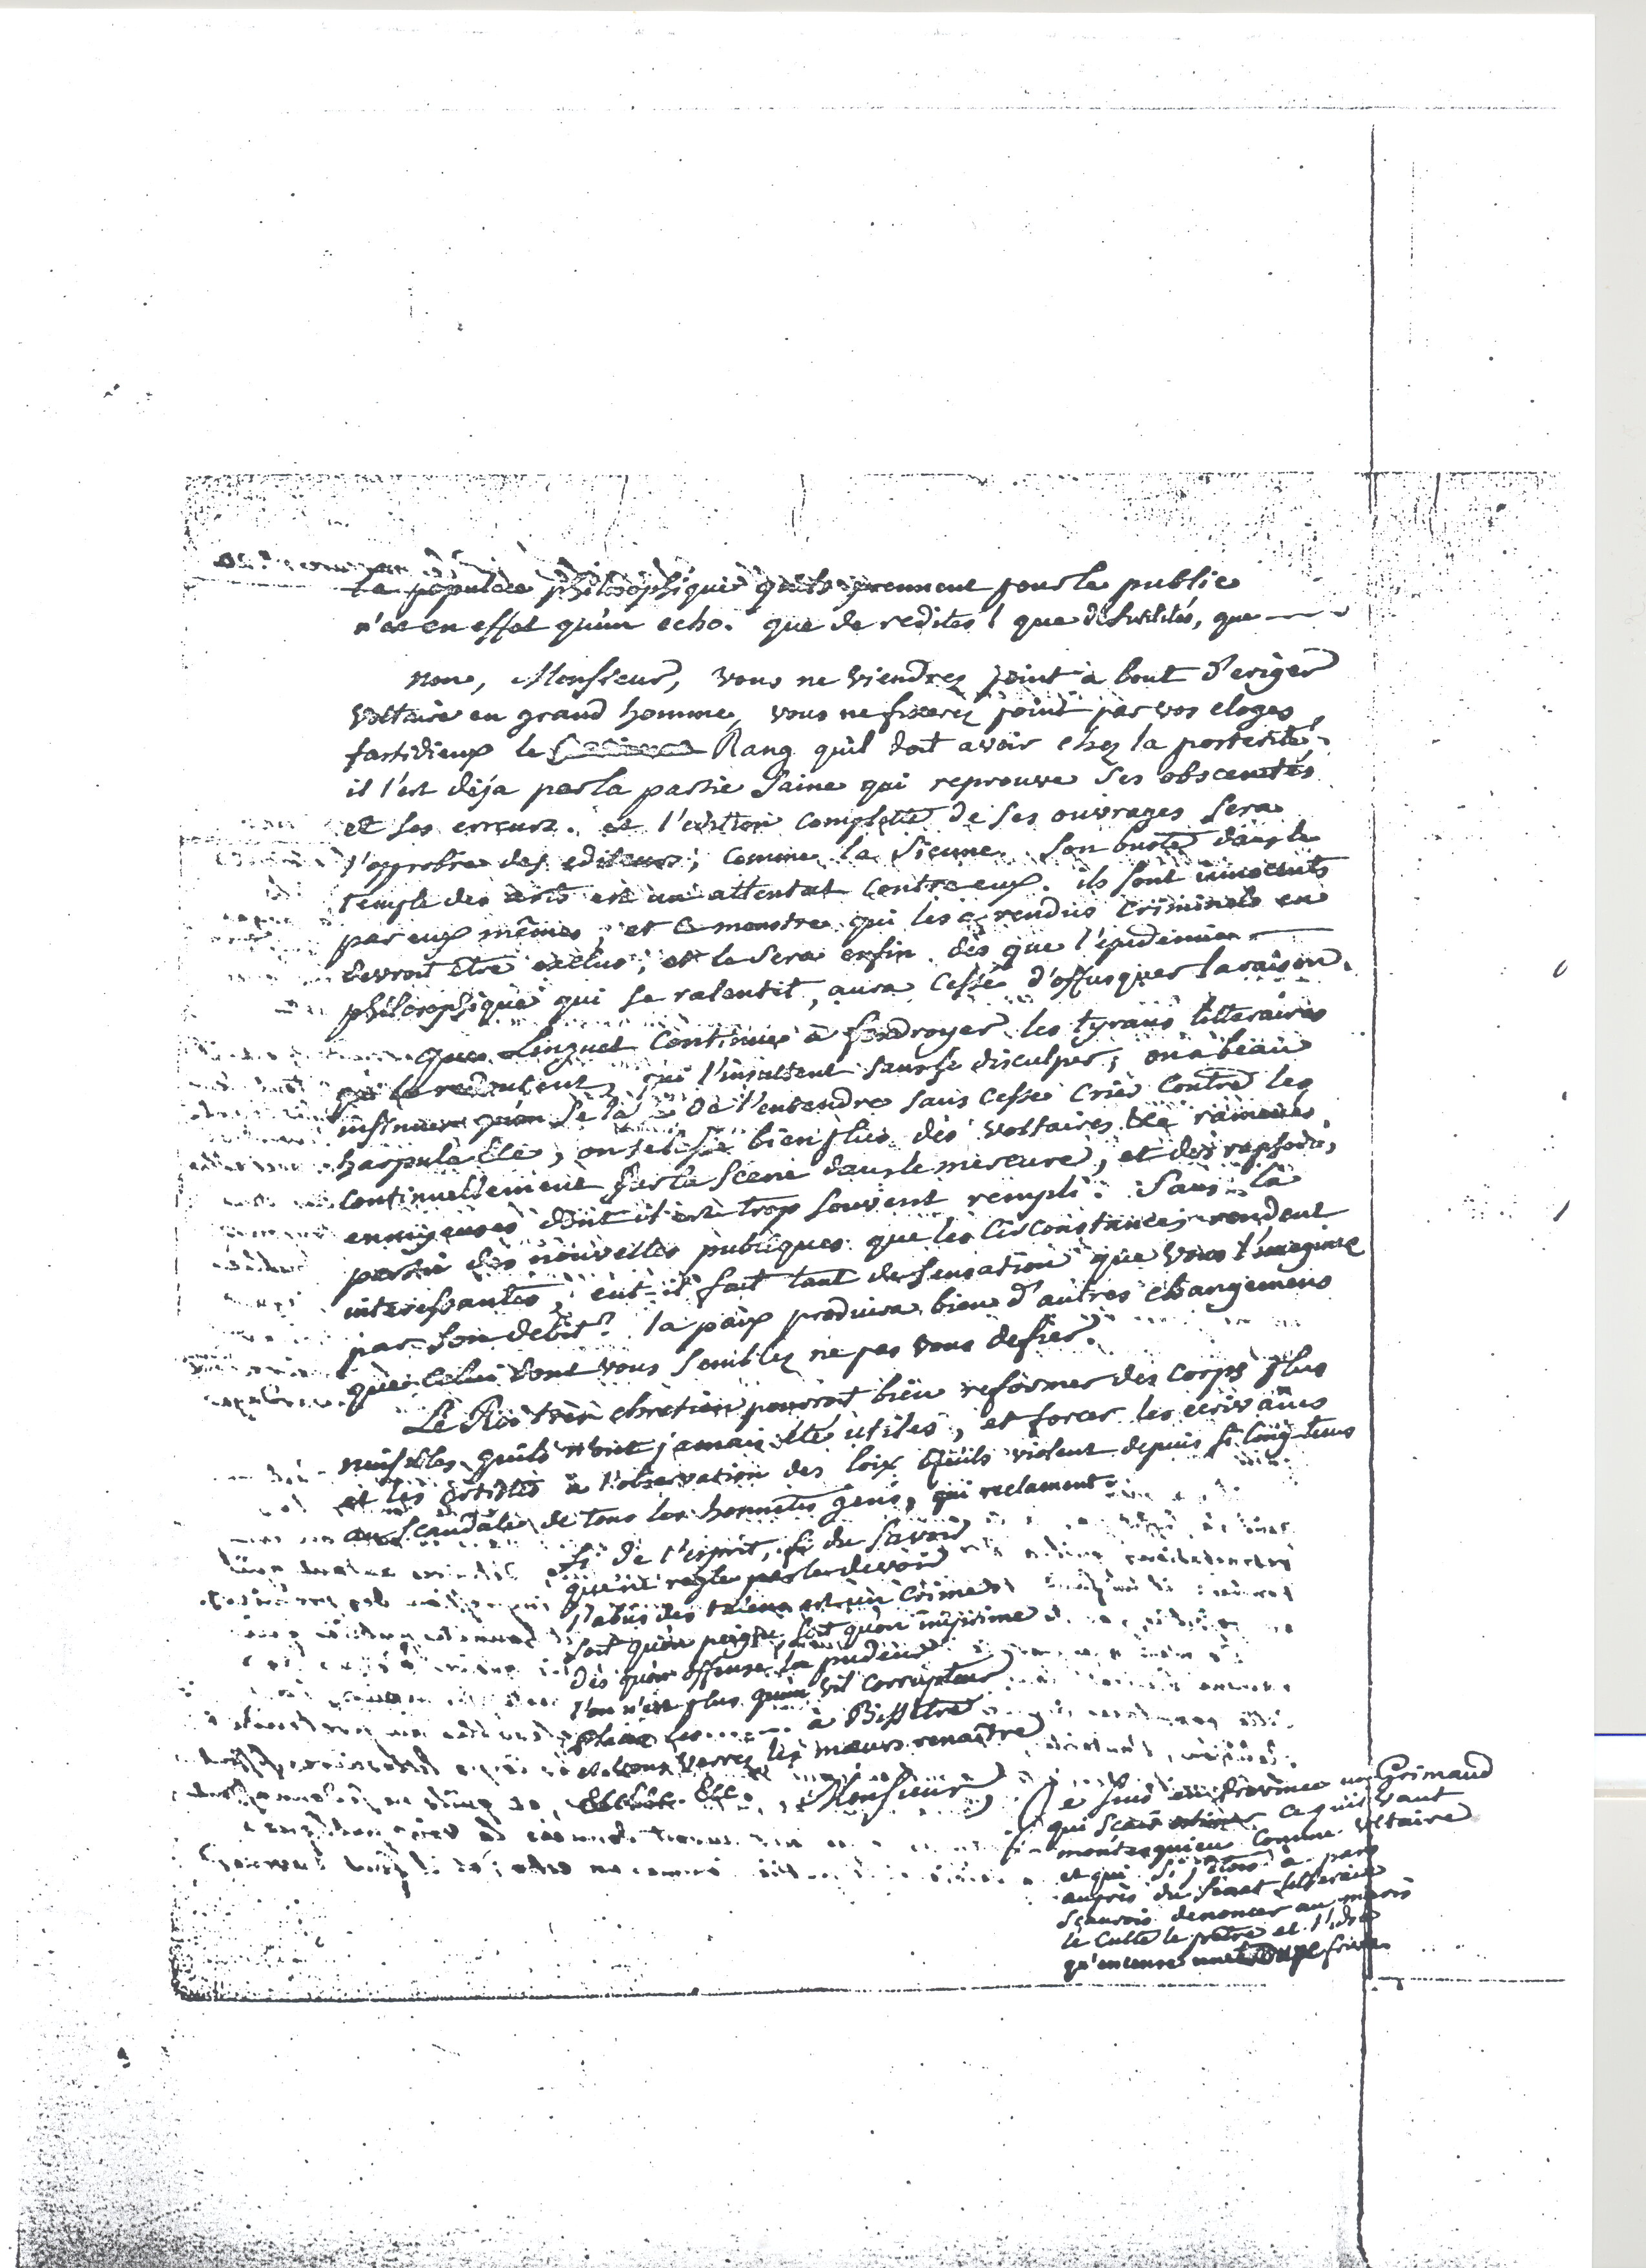 La populace philosophique qu'ils prennent pour le public
n'est en effet qu'un echo. que de redites ! que de futilités, que
non, Monsieur, vous ne viendrez point à bout d'eriger
Voltaire en grand homme, vous ne fixerez point par vos eloges
fastidieux le Rang qu'il doit avoir chez la posterité;
il l'est déja par la partie saine qui reprouve ses obscenités
et ses erreurs. et l'edition complette de ses ouvrages sera
l'opprobre des editeurs, comme la sienne. Son buste dans le
temple des arts est un attentat contre eux. ils sont innocents
par eux mêmes, et ce monstre qui les a rendus criminels en
devroit être exclus, et le sera enfin dès que l'epidemie
philosophique qui se ralentit, aura cessé d'offusquer la raison.
que Linguet continue à foudroyer les tyrans litteraires
qui le redoutent, qui l'insultent sans se disculper; on a beau
insinuer qu'on se lasse de l'entendre sans cesse crier contre les
bien plus des voltaires ramenés
continuellement sur la scene dans le mercure, et des rapsodies
ennuyeuses dont il est trop souvent rempli. Sans la
partie des nouvelles publiques que les circonstances rendent
interessantes, eut-il fait tant de sensation que vous l'imaginez
par son debit? la paix produira bien d'autres changemens
que celui dont vous semblez ne pas vous defier.
Le Roi très chretien pourroit bien reformer des corps plus
nuisibles qu'ils n'ont jamais été utiles, et forcer les ecrivains
et les artistes à l'observation des loix qu'ils violent depuis si long-tems
au scandale de tous les honnêtes gens, qui reclament.
fi de l'esprit, fi du savoir
qu'on ne regle par le devoir
l'abus des talens est un crime
soit qu'on peigne, soit qu'on imprime
dès qu'on offense la pudeur
l'on n'est plus qu'un vil corrupteur
à Bissetre
et vous verrez les mœurs renaître
Monsieur,
Je suis en Province un Grimaud
qui sçait estimer ce qu'il vaut
montesquieu comme voltaire
et qui si j'etois à paris
auprès du senat litteraire
sçaurois denoncer au mepris
le culte le prêtre et l'idole
qu'encense une troupe frivole